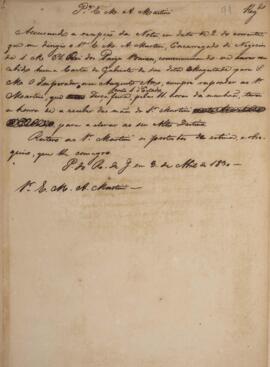 Pª E. M. A. Martini
Accusando a recepção da Nota em data de 2 do corrente
que me dirigio o Sr. E. M. A. Martini, Encarregado de Negocios
de S. M. El Rei dos Paizes Baixos, communicando me haver re-
cebido huma Carta de Gabinete de seu Augusto para S.
M. O Imperador, meu Augusto Amo, cumpre responder ao Sr.
Martini, que pelas 11 horas da manhã, terei
a honra de a receber das mãos do Sr. Martini
para a elevar ao seu Alto Destino.
Reitero ao Sr. Martini os protestos de estima, e obse-
quio, que lhe consagro.
P. do R. de J. em 3 de de 1830
Sr. E. M. A. Martini